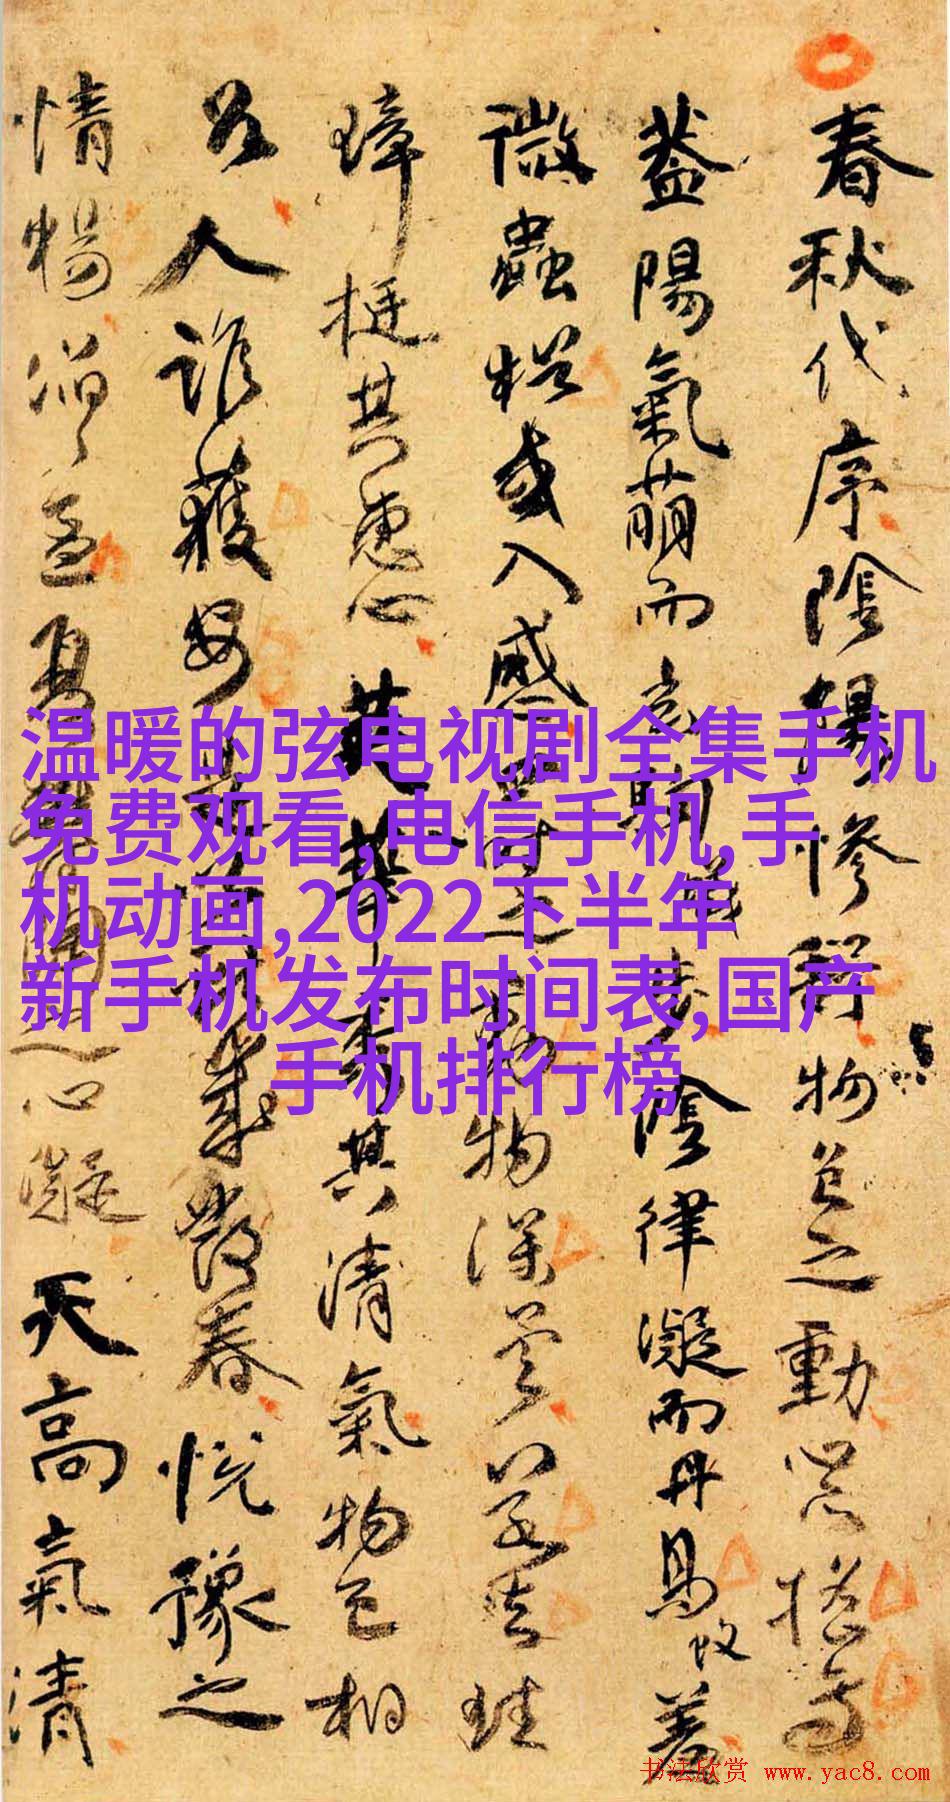 春秋代序陰陽慘舒物色之動心亦搖焉
蓋陽氣萌而玄駒蟻步陰律凝而丹鳥蚊羞
微蟲猶或入感四時之動物深矣若夫珪
璋挺其惠心英華秀其清氣物色相
召人誰獲安是以獻歲發春悅豫之
情暢滔滔孟夏鬱陶之心凝天高氣清
温暖的弦电视剧全集手机
免费观看,电信手机,手
机动画,2022下半年
新手机发布时间表,国产
手机排行榜
书法欣赏 www.yac8.com